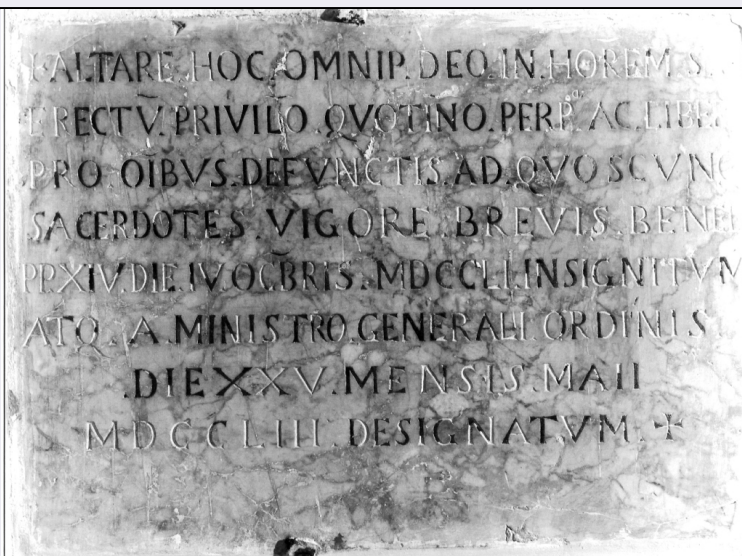 ALTARE.HOC.OMNIP.DEO.IN.HOREM S.
ERECTV̄.PRIVILŌ.QVOTINO.PERP.AC.LIBE
PRO.OĪBVS.DEFVNCTIS.AD.QVOSCVNQ
SACERDOTES.VIGORE.BREVIS.BENE
PP.XIV.DIE.IV.OC̄BRIS.MDCCLI.INSIGNITVM
ATQ.A.MINISTRO.GENERALI.ORDINIS
.DIE XXV.MENSIS.MAII
MDCCLIII.DESIGNATVM.✠